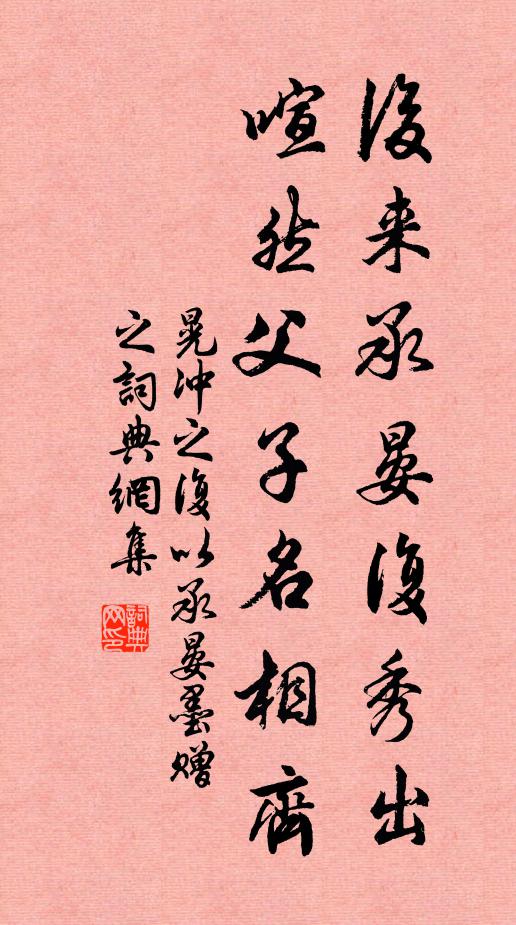 後来承晏復秀出
喧然父子名相齊
晁冲之復以承晏墨贈
之詞典網集
詞典
网印